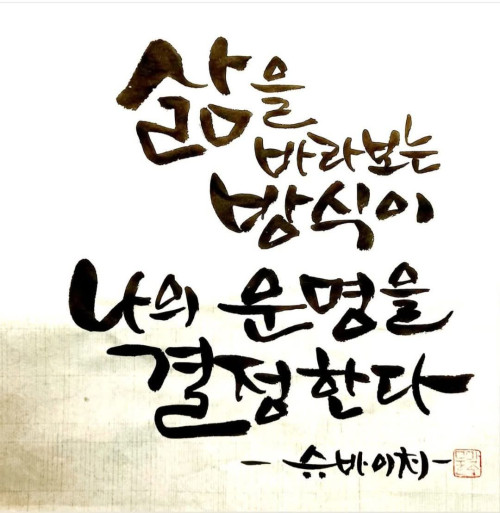 삶을
바라보는
방식이
나의 운명을
결정한다
- 슈바이처 -